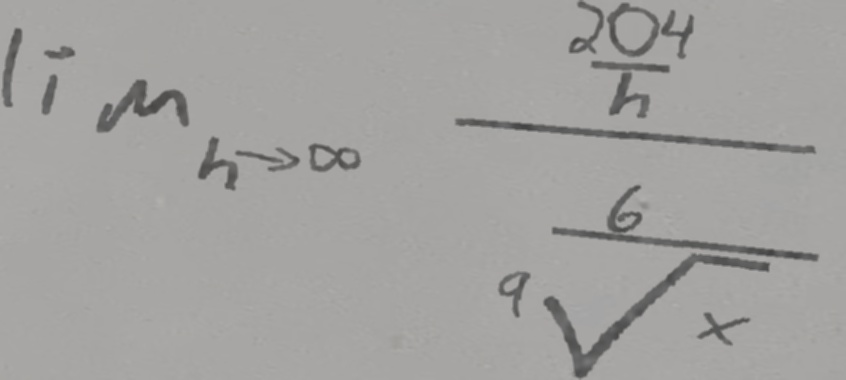 lim h→∞ \frac{\frac{204}{h}}{\frac{6}{\sqrt[9]{x}}}